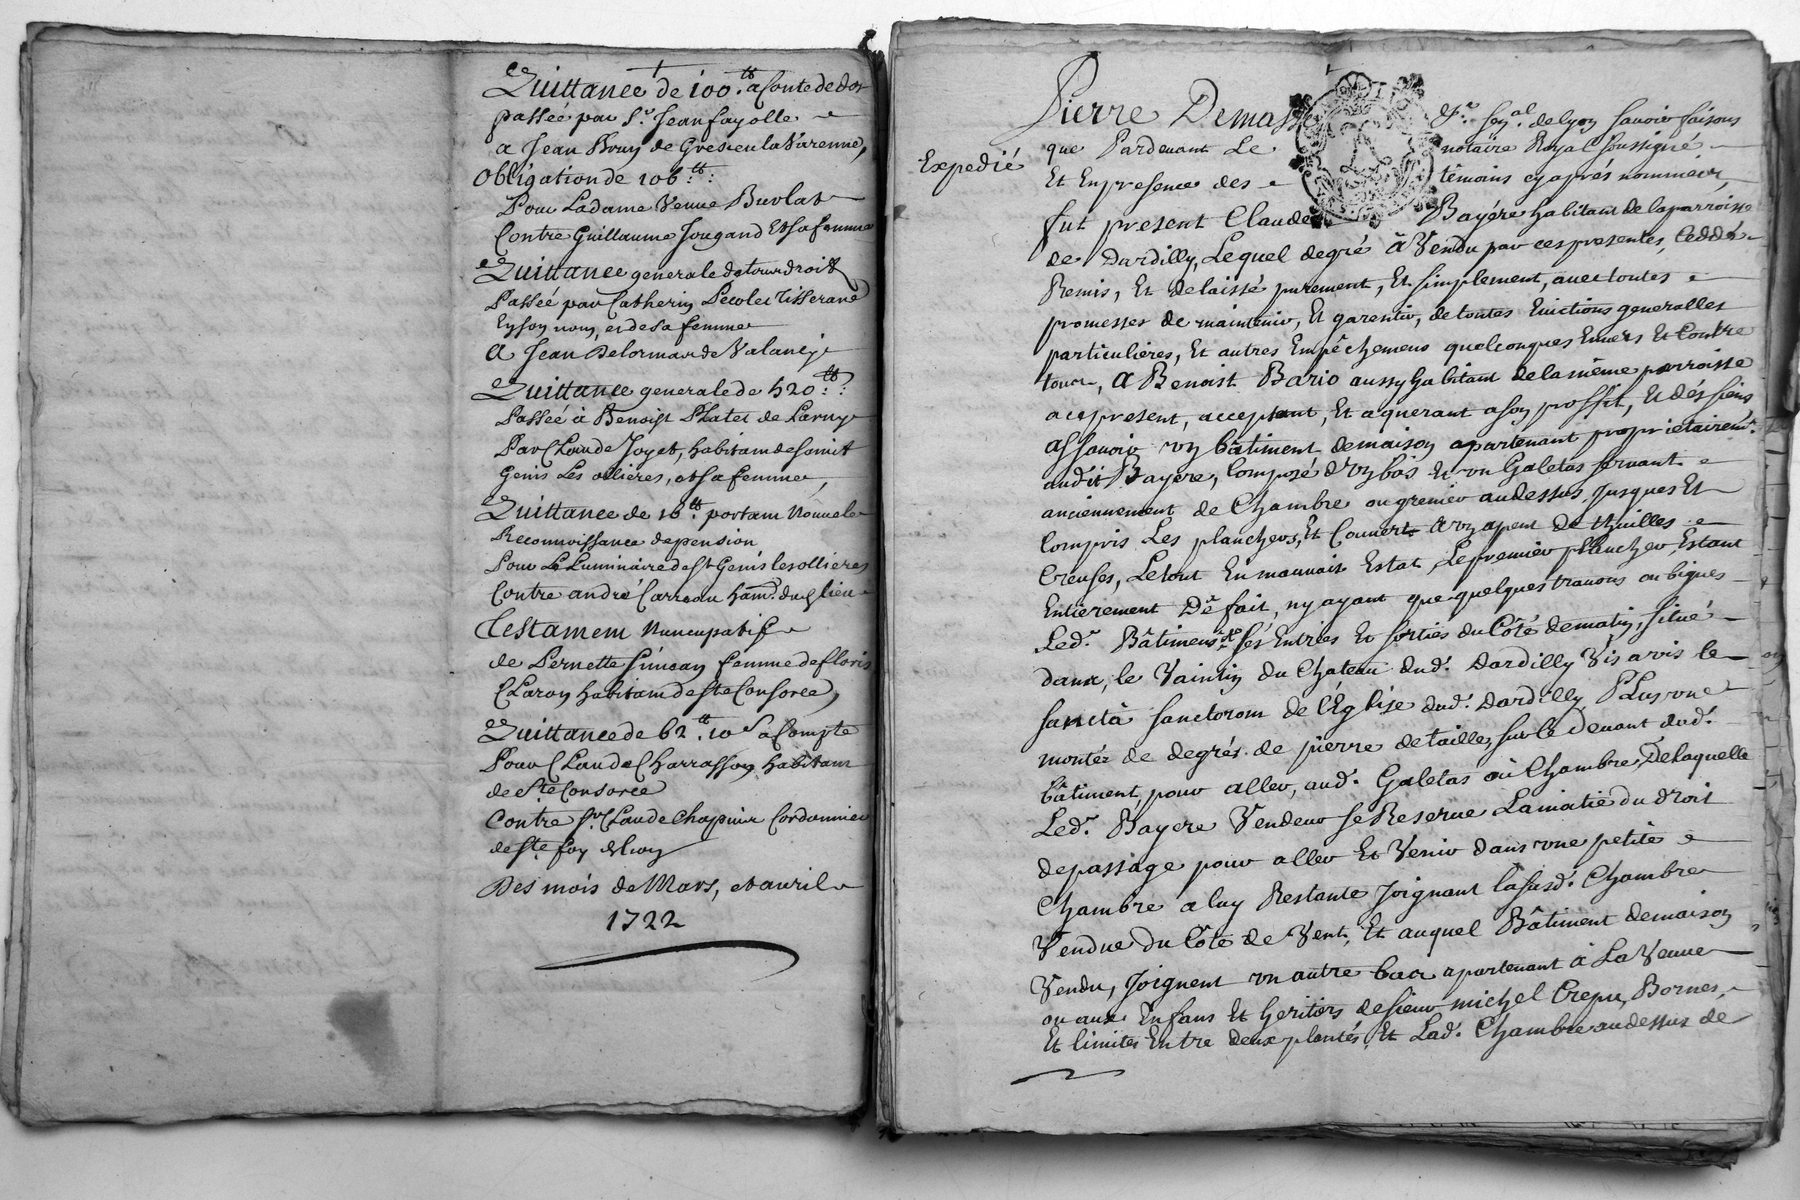 Quittance de 100.tt a Conte de dot
passée par Sr. Jean fayolle
a Jean Brun de Gresieu la Varenne,
Obligation de 106.tt:
Pour Ladame Veuve Burlat
Contre Guillaume Jougand Et sa femme
Quittance generale de tour droit
Passée par Catherin Pecolet Tisserand
En son nom, et de sa femme
A Jean Delorma de
Quittance generale de 520.tt:
Passée à Benoist Platet de
Par Claude Joyet, habitam de Saint
Genis Les ollieres, et sa femme,
Quittance de 16.tt portam Nouvele
Reconnoissance de pension
Pour Le Luminaire de St Genis les ollieres
Contre andré Carreau ham. dud. lieu
Testament Nuncupatif
de Pernette Simean femme de floris
Claron habitam de Ste Consorce,
Quittance de 62.tt 10s a Compte
Pour Claude Charrasson habitam
de Ste Consorce
Contre Sr. Claude Chapuis Cordonnier
de Ste foy
Des mois de Mars, et avril
1722
Expedié
Pierre Demasse Sr. Sen.al de lyon Savoir faisons
que Pardevant Le notaire Royal Soussigné
Et En presence des témoins cy aprés nommér,
fut present Claude Bayére habitant de la parroisse
de Dardilly, Lequel de gré à Vendu par ces presentes, Ceddé
Remis, Et delaissé purement, Et simplement, avec toutes
promesses de maintenir, Et garentir, de toutes Evictions generalles
particulieres, Et autres Empêchemens quelconques Envers Et Contre
tour, A Benoist Bario aussy habitant de la même parroisse
acy present, acceptant, Et aquerant a son proffit, Et dés siens
assavoir un bâtiment de maison apartenant proprietairemt.
audit Bayere, Composé d'un bas Et un Galetas servant
anciennement de Chambre ou grenier audessus, Jusques Et
Compris Les planchers, Et Couvert a un apent de thuilles
Creuses, Le tout En mauvais Estat, Le premier plancher, Estant
Entierement Défait, n'y ayant que quelques travons ou bigues
Led. Bâtiment Ses Entrées Et sorties du Côté de matin, situé
dans, le Vaintin du Chateau dud. Dardilly Vis avis le
Sanctâ Sanctorom de l'Église dud. Dardilly, Plus une
montéz de degrés de pierre de taille, sur le devant dud.
bâtiment, pour aller, aud. Galetas où Chambre, De laquelle
Led. Bayere Vendeur se Reserve La moitié du droit
de passage pour aller Et Venir dans une petite
Chambre a luy Restante Joignant la susd. Chambre
Vendue du Côté de Vent, Et auquel Bâtiment de maison
Vendu, Joignent un autre bas apartenant à La Veuve
ou aux Enfans Et heritiers de sieur michel Crepu, Bornes,
Et limites Entre deux plantés, Et Lad. Chambre audessus de